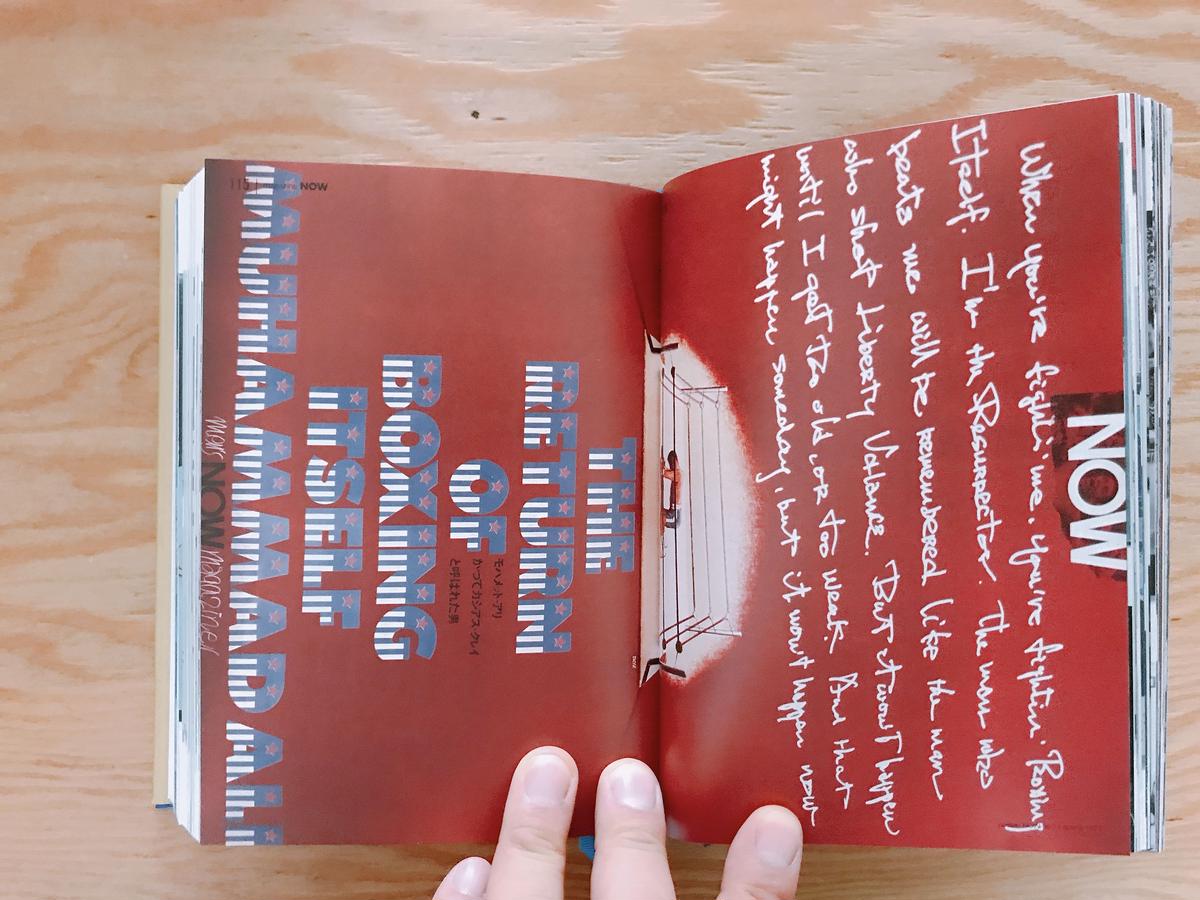 NOW
When you're fightin' me, you're fightin' Boxing
Itself. I'm the Resurrecter. The man who
beats me will be remembered like the man
who shot Liberty Valance. But it won't happen
until I get too old or too weak. And that
might happen someday, but it won't happen now
THE
RETURN
OF
モハメト・アリ
かつてカシアス・クレイ
と呼ばれた男
BOXING
ITSELF
MUHAMMAD ALI
115
NOW
mens NOW magazines